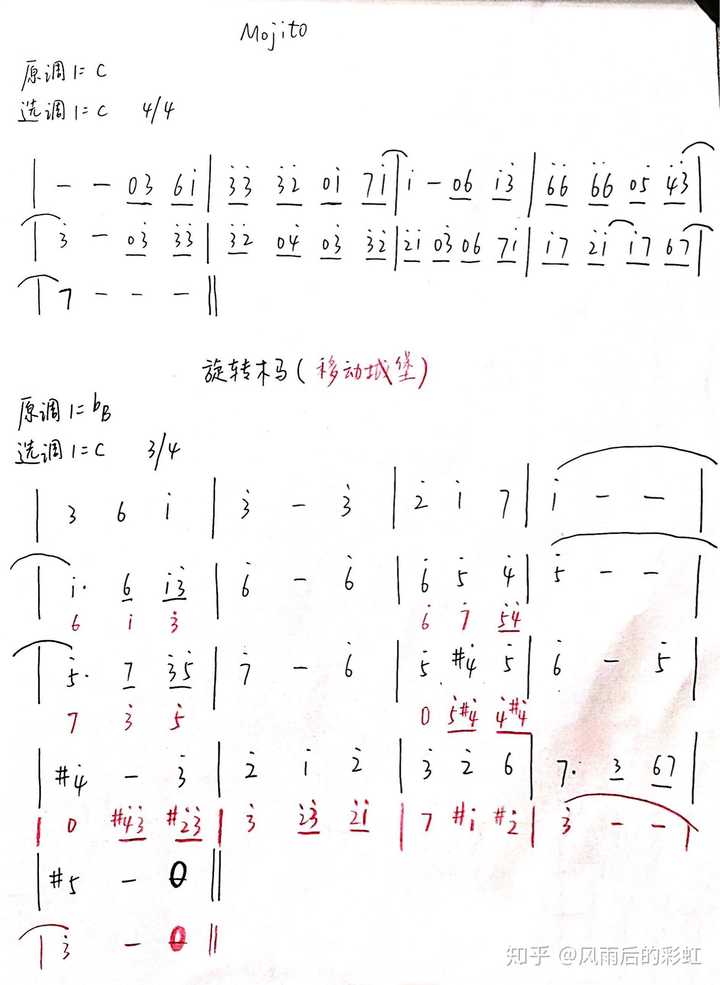 Mojito
原调 1=C
选调 1=C 4/4
| - - 03 6i̇ | 3̇3̇ 3̇2̇ 0i̇ 7i̇ | i̇ - 06 i̇3̇ | 6̇6̇ 6̇6̇ 05̇ 4̇3̇ |
| 3̇ - 03̇ 3̇3̇ | 3̇2̇ 04̇ 03̇ 3̇2̇ | 2̇i̇ 03̇ 06 7i̇ | i̇7 2̇i̇ i̇7 67 |
| 7 - - - ||
旋转木马(移动城堡)
原调 1=bB
选调 1=C 3/4
| 3 6 i̇ | 3̇ - 3̇ | 2̇ i̇ 7 | i̇ - - |
| i̇· 6 i̇3̇ | 6̇ - 6̇ | 6̇ 5̇ 4̇ | 5̇ - - |
6 i̇ 3̇ 6̇ 7̇ 5̇4̇
| 5̇· 7 3̇5̇ | 7̇ - 6̇ | 5̇ #4̇ 5̇ | 6̇ - 5̇ |
7 3̇ 5̇ 0 5̇#4̇ 4̇#4̇
| #4̇ - 3̇ | 2̇ i̇ 2̇ | 3̇ 2̇ 6 | 7· 3 67 |
| 0 #4̇3̇ #2̇3̇ | 3̇ 2̇3̇ 2̇i̇ | 7 #i̇ #2̇ | 3̇ - - |
| #5 - 0 ||
| 3̇ - 0 ||
知乎 @风雨后的彩虹